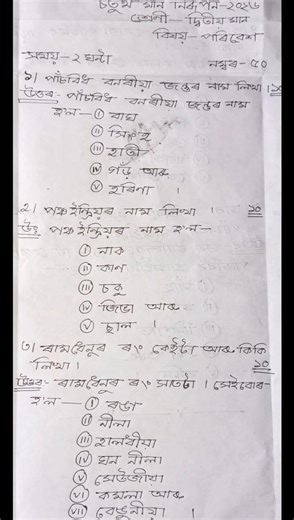 চতুৰ্থ মান নিৰূপন-২০২৬
শ্ৰেণী—দ্বিতীয় মান
বিষয়-পৰিবেশ
সময়-২ ঘন্টা নম্বৰ-৫০
১/ পাঁচবিধ বনৰীয়া জন্তুৰ নাম লিখা । ১০
উত্তৰ: পাঁচবিধ বনৰীয়া জন্তুৰ নাম
হ'ল— (I) বাঘ
(II) সিংহ
(III) হাতী
(IV) গঁড় আৰু
(V) হৰিণা ।
২। পঞ্চ ইন্দ্ৰিয়ৰ নাম লিখা । ১০
উঃ পঞ্চ ইন্দ্ৰিয়ৰ নাম হ'ল—
(I) নাক
(II) কাণ
(III) চকু
(IV) জিভা আৰু
(V) ছাল ।
৩। ৰামধেনুৰ ৰং কেইটা আৰু কিকি
লিখা । ১০
উত্তৰ:- ৰামধেনুৰ ৰং সাতটা । সেইবোৰ
হ'ল — (I) ৰঙা
(II) নীলা
(III) হালধীয়া
(IV) ঘন নীলা
(V) সেউজীয়া
(VI) কমলা আৰু
(VII) বেঙুনীয়া ।